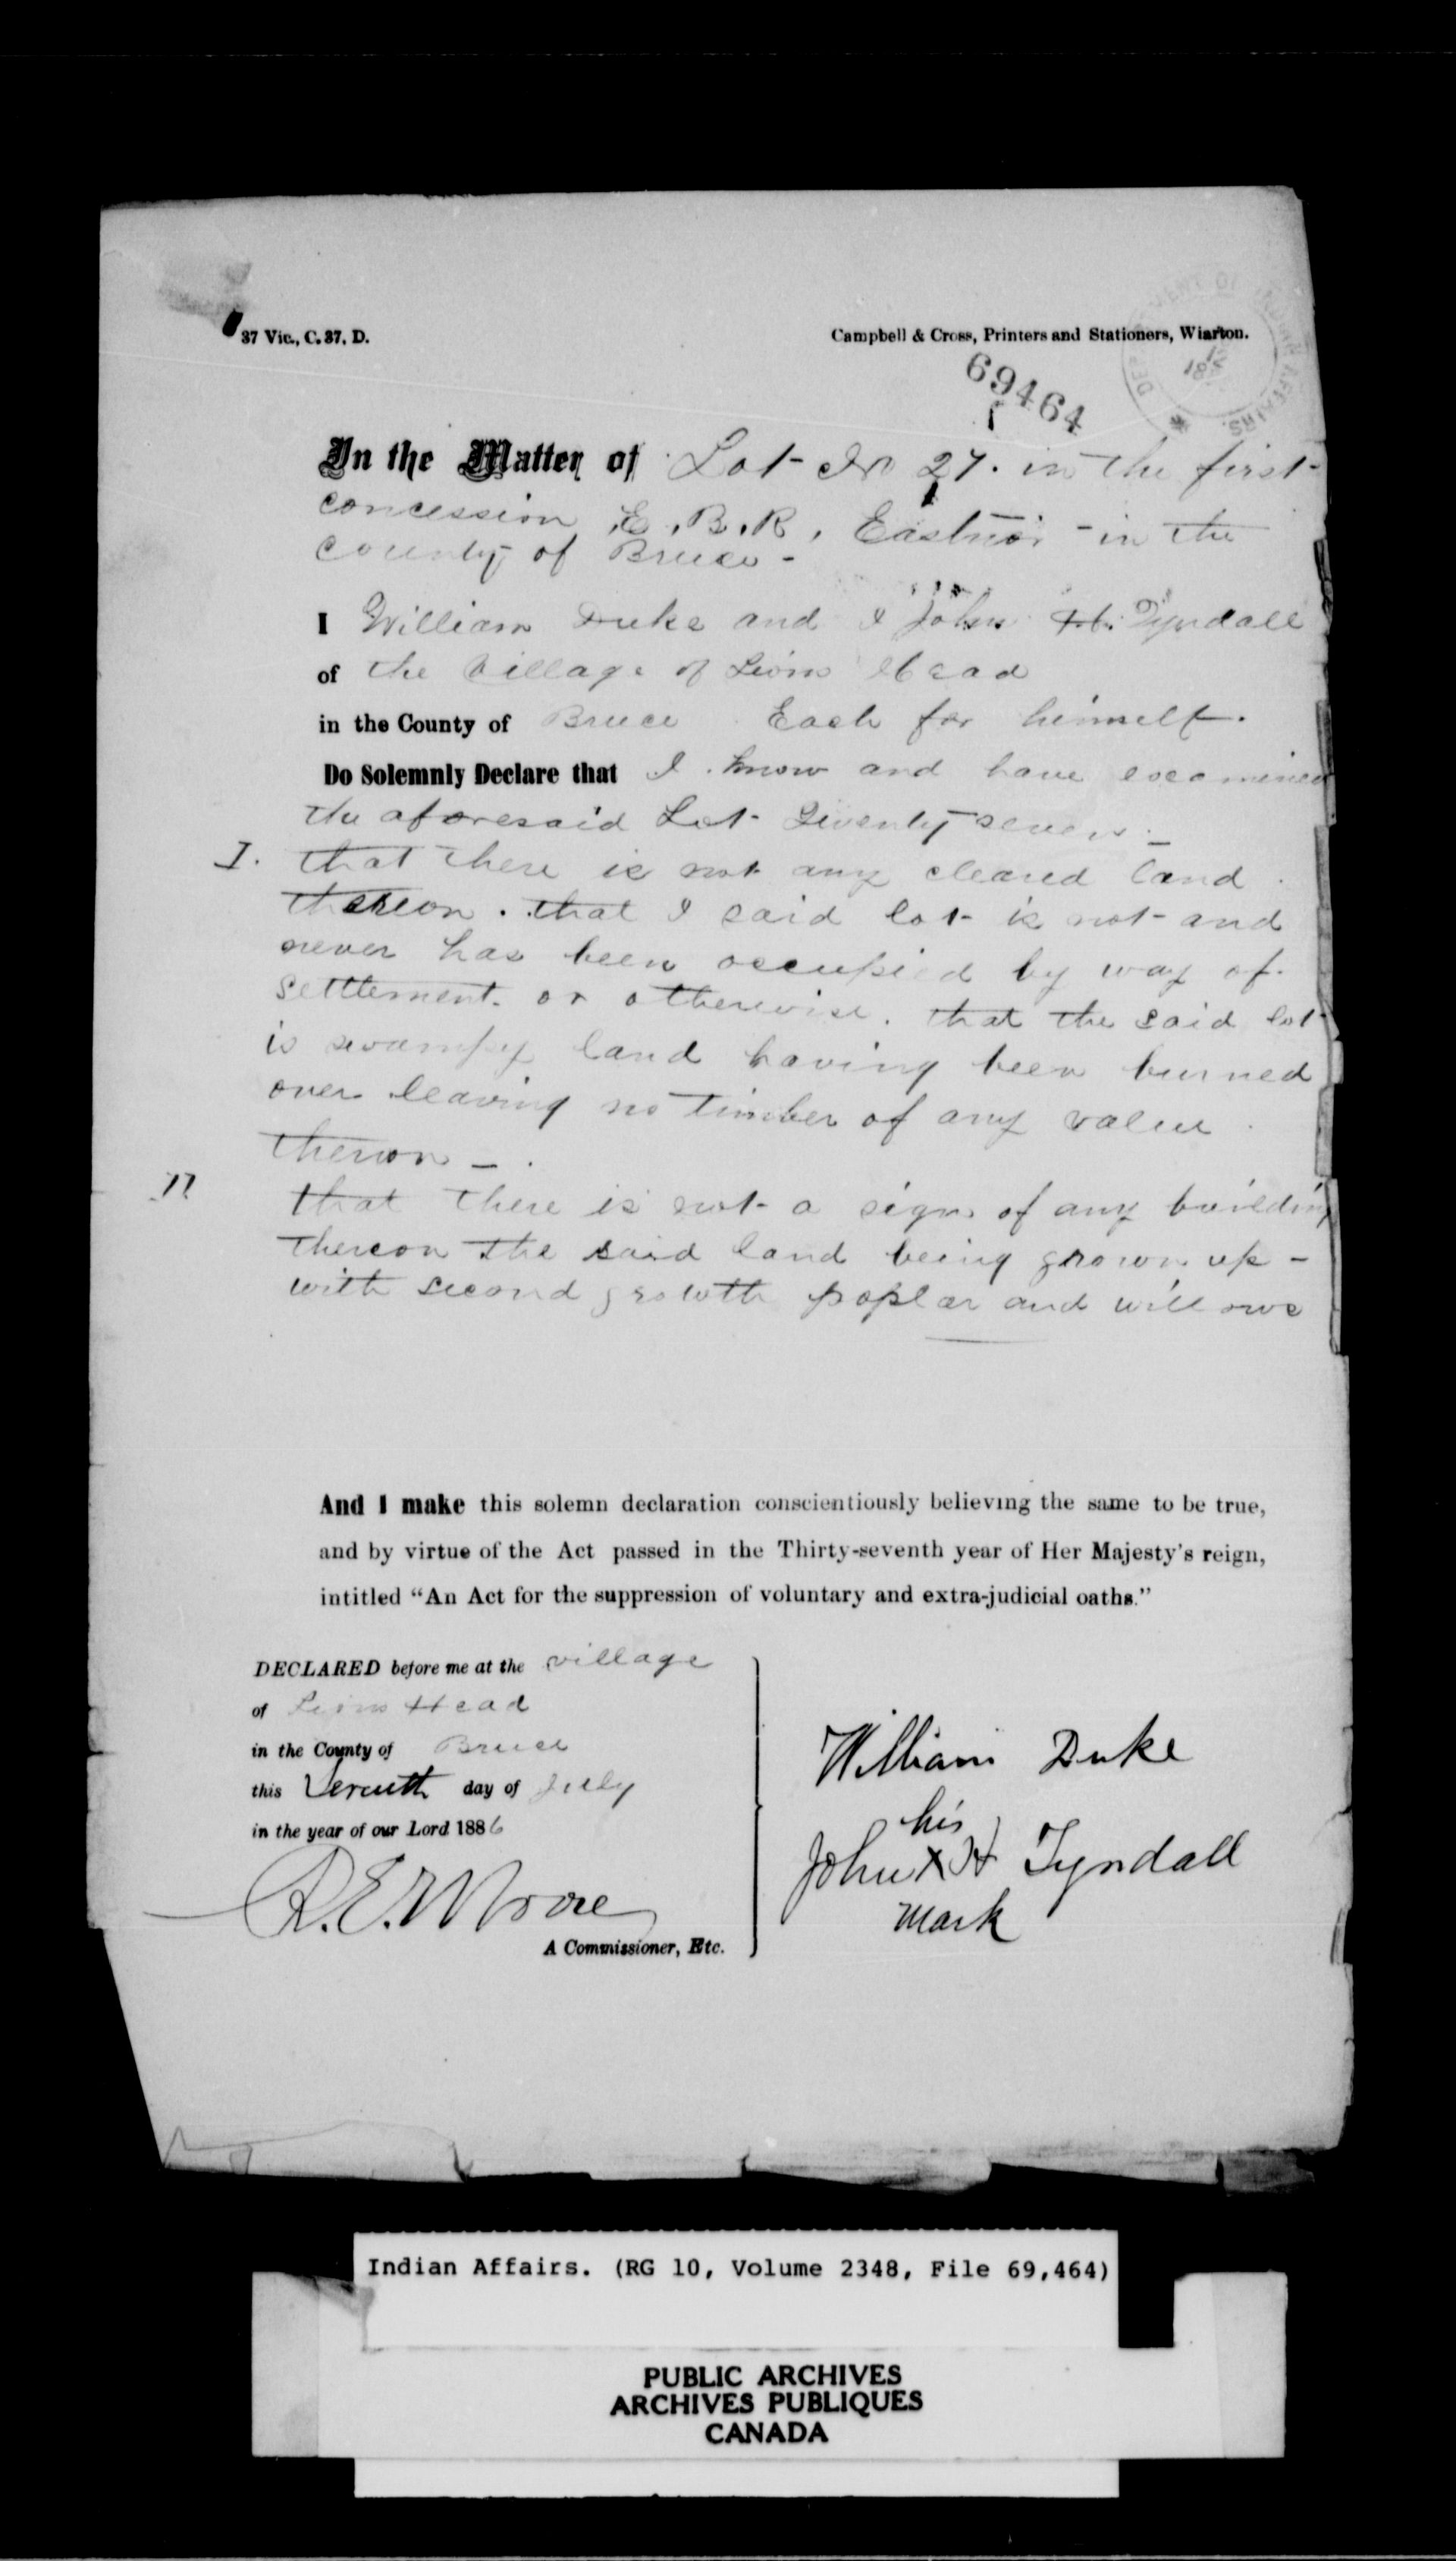 37 Vic., C. 37. D.
Campbell & Cross, Printers and Stationers, Wiarton.
DEPARTMENT OF INDIAN AFFAIRS.
69464
In the Matter of Lot No 27. in the first
concession E. B. R, Eastnor in the
county of Bruce -
I William Duke and I John H. Tyndall
of the Village of Lions Head
in the County of Bruce Each for himself.
Do Solemnly Declare that I know and have examined
the aforesaid Lot Twenty seven -
I. that there is not any cleared land
thereon. that I said lot is not and
never has been occupied by way of
settlement or otherwise. that the said lot
is swampy land having been burned
over leaving no timber of any value
theron -
II that there is not a sign of any building
thereon the said land being grown up -
with second growth poplar and willows
And I make this solemn declaration conscientiously believing the same to be true,
and by virtue of the Act passed in the Thirty-seventh year of Her Majesty's reign,
intitled "An Act for the suppression of voluntary and extra-judicial oaths."
DECLARED before me at the village
of Lions Head
in the County of Bruce
this Seventh day of July
in the year of our Lord 1886
R. E. Moore
A Commissioner, Etc.
William Duke
his
John X H Tyndall
mark
Indian Affairs. (RG 10, Volume 2348, File 69,464)
PUBLIC ARCHIVES
ARCHIVES PUBLIQUES
CANADA